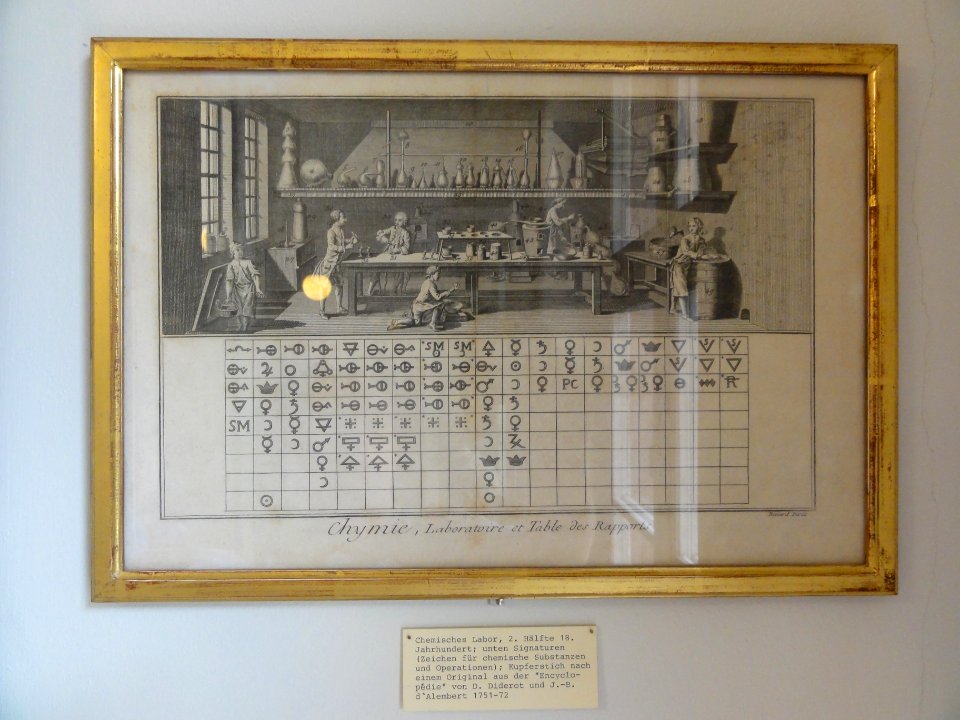 SM SM
PC
SM
Chymie, Laboratoire et Table des Rapports
Chemisches Labor, 2. Hälfte 18.
Jahrhundert; unten Signaturen
(Zeichen für chemische Substanzen
und Operationen); Kupferstich nach
einem Original aus der "Encyclo-
pédie" von D. Diderot und J.-B.
d'Alembert 1751-72